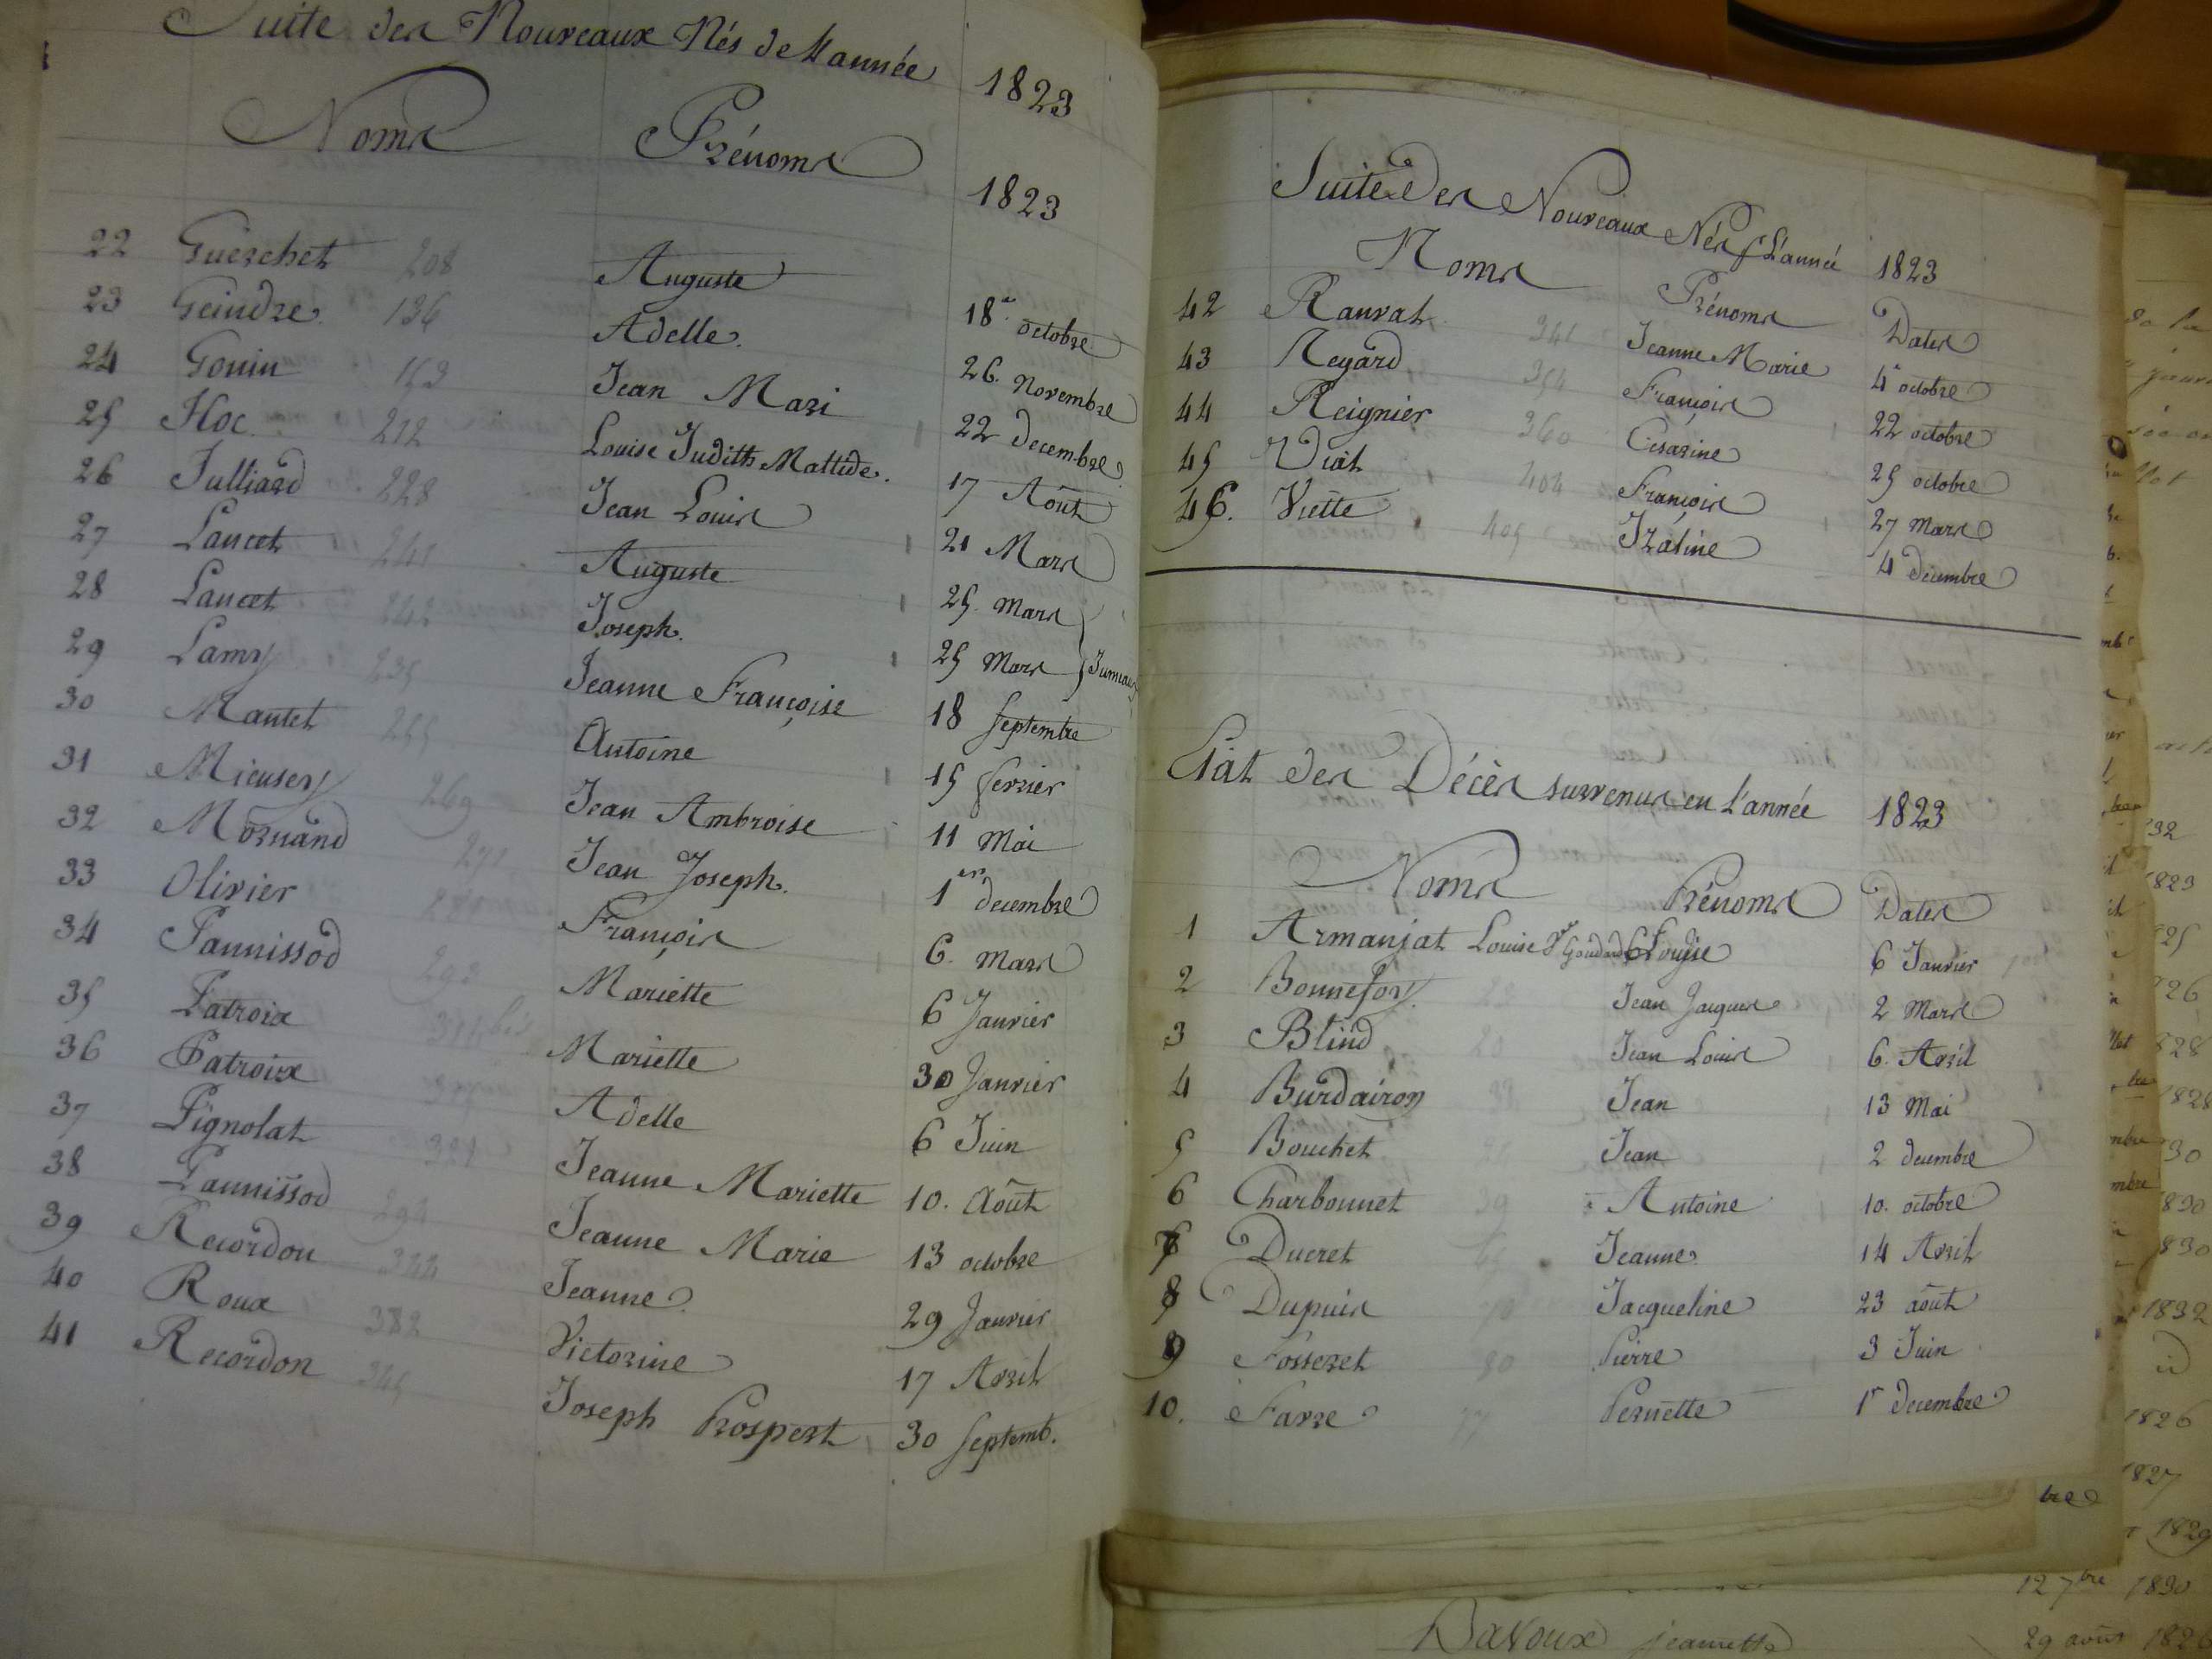 Suite des Nouveaux Nés de L'année 1823
Noms Prénoms 1823
22 Guerchet 208 Auguste 18e octobre
23 Geindre 136 Adelle 26 Novembre
24 Gouin 153 Jean Mari 22 decembre
25 Hoc 212 Louise Judith Matilde 17 Août
26 Julliard 228 Jean Louis 21 Mars
27 Lancet 241 Auguste 25 Mars
28 Lancet 242 Joseph 25 Mars Jumeaux
29 Lamy 235 Jeanne Françoise 18 Septembre
30 Mantet 255 Antoine 15 fevrier
31 Mieusery 269 Jean Ambroise 11 Mai
32 Mornand 271 Jean Joseph 1er decembre
33 Olivier François 6 Mars
34 Pannissod 293 Mariette 6 Janvier
35 Patroix bis Mariette 30 Janvier
36 Patroix Adelle 6 Juin
37 Pignolat 321 Jeanne Mariette 10 Août
38 Pannissod 294 Jeanne Marie 13 octobre
39 Recordon 344 Jeanne 29 Janvier
40 Roux 382 Victorine 17 Avril
41 Recordon 345 Joseph Prospert 30 Septemb.
Suite des Nouveaux Nés L'année 1823
Noms Prénoms Dates
42 Ranvat 341 Jeanne Marie 4e octobre
43 Regard 354 François 22 octobre
44 Reignier 360 Cesarine 25 octobre
45 Viat 404 François 27 Mars
46. Viette 405 Italine 4 decembre
Etat des Décès survenus en L'année 1823
Noms Prénoms Dates
1 Armanjat Louise 6 Janvier
2 Bonnefoy Jean Jacques 2 Mars
3 Blind 20 Jean Louis 6 Avril
4 Burdairon Jean 13 Mai
5 Bouchet Jean 2 decembre
6 Charbonnet 39 Antoine 10 octobre
7 Ducret 65 Jeanne 14 Avril
8 Dupuis 70 Jacqueline 23 août
9 Fosseret 80 Pierre 3 Juin
10. Favre 77 Pernette 1r decembre
12 7bre 1830
Davoux jeannette 29 août 1826